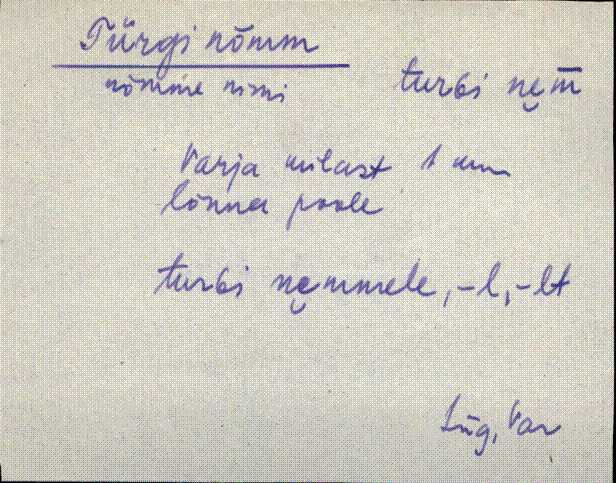 Türgi nõmm
nõmme nimi
turbi ne̮m̄
Varja külast 1 km
lõuna poole
turbi ne̮mmele, -l, -lt
Lüg, Var